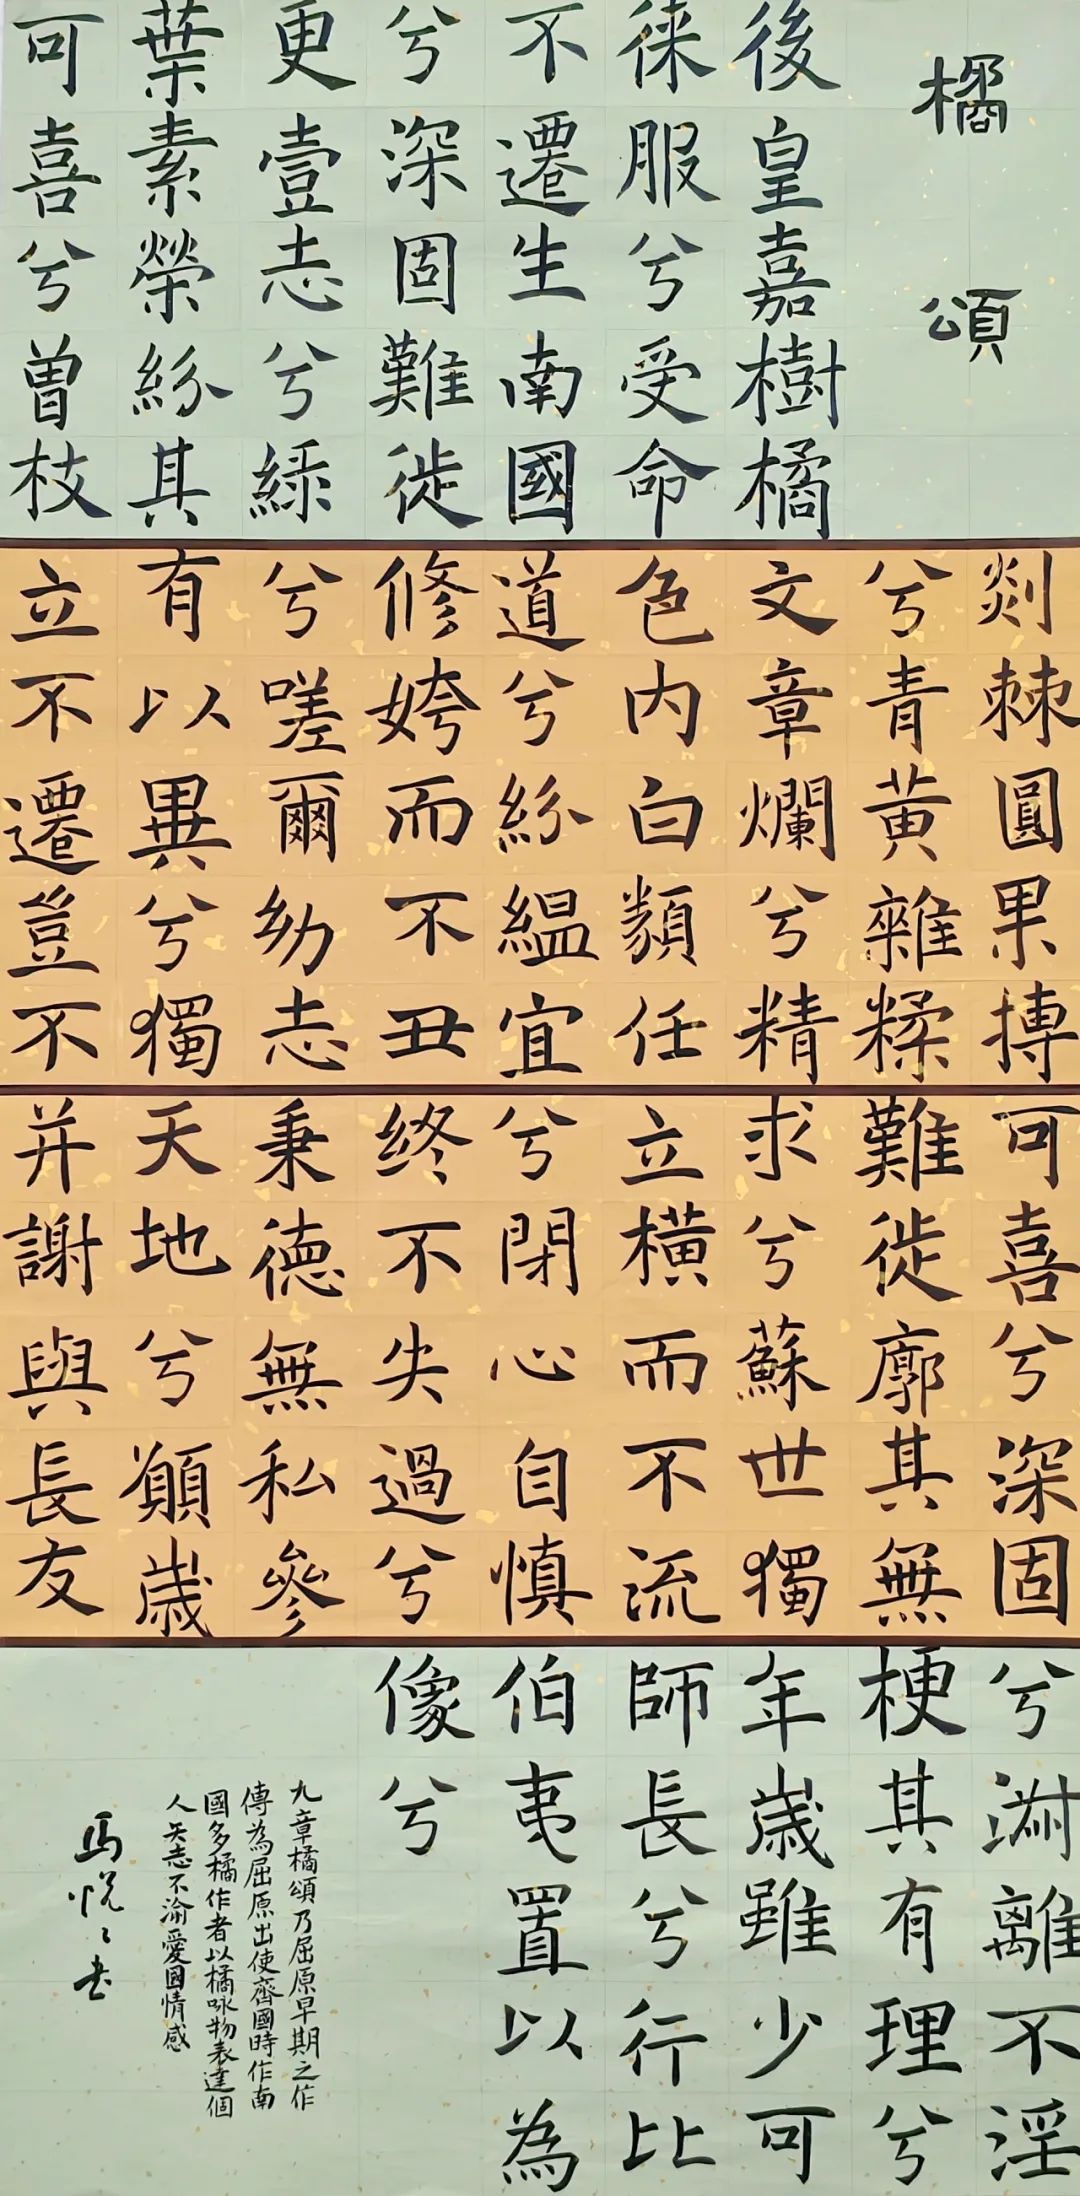 橘頌
後皇嘉樹橘
徠服兮受命
不遷生南國
兮深固難徙
更壹志兮綠
葉素榮紛其
可喜兮曾枝
剡棘圓果搏
兮青黃雜糅
文章爛兮精
色内白類任
道兮紛緼宜
修姱而不丑
兮嗟爾幼志
有以異兮獨
立不遷豈不
可喜兮深固
難徙廓其無
求兮蘇世獨
立橫而不流
兮閉心自慎
终不失過兮
秉德無私參
天地兮願歲
并謝與長友
兮淋離不淫
梗其有理兮
年歲雖少可
師長兮行比
伯夷置以為
像兮
九章橘頌乃屈原早期之作
傳為屈原出使齊國時作南
國多橘作者以橘咏物表達個
人矢志不渝愛國情感
馬悦々书